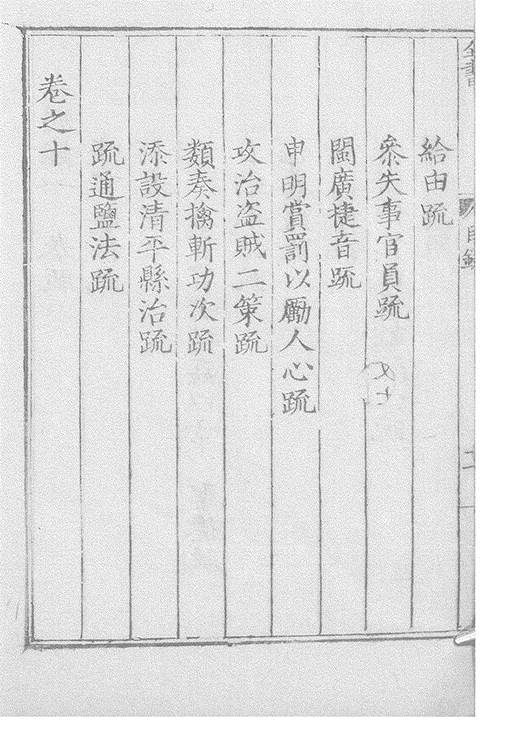 全書
目錄
二
給由疏
參失事官員疏
閩廣捷音疏
申明賞罰以勵人心疏
攻治盗賊二策疏
類奏擒斬功次疏
添設清平縣治疏
疏通鹽法疏
卷之十